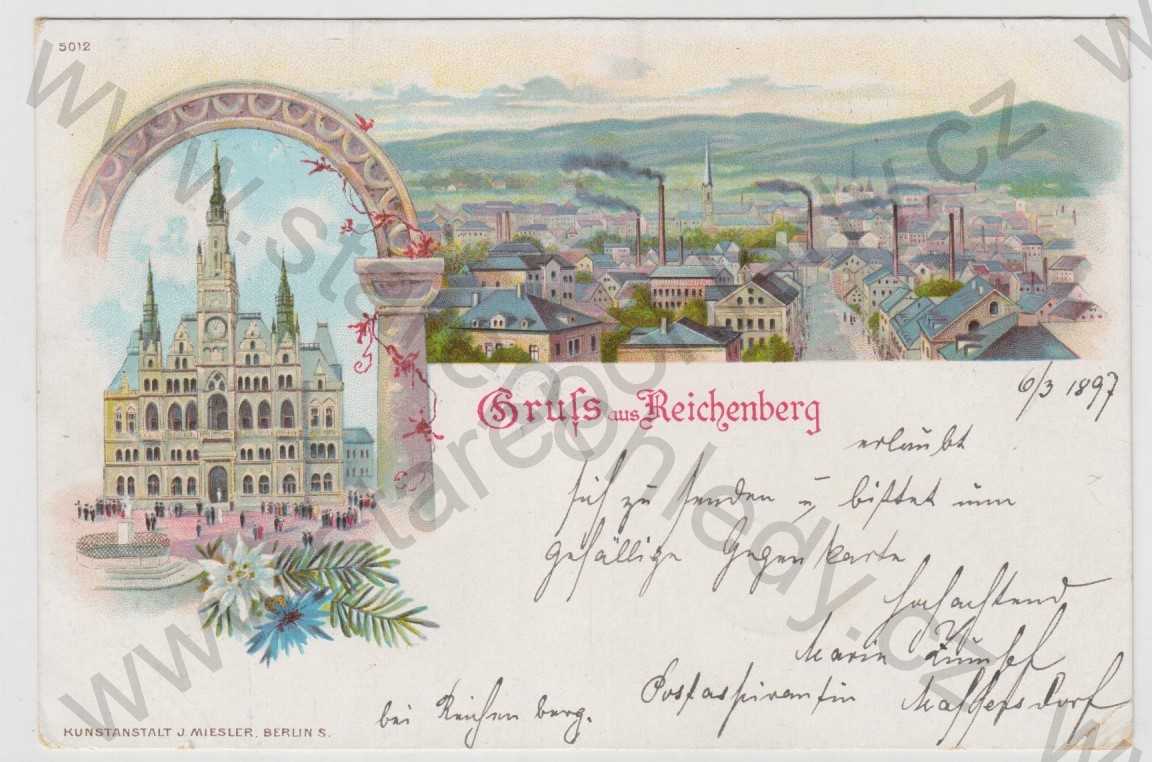 5012
Gruſs aus Reichenberg
6/3 1897
erlaubt
sich zu senden u bittet um
gefällige Gegenkarte
Hochachtend
Marie
Postaspirantin Maffersdorf
bei Reichenberg.
KUNSTANSTALT J. MIESLER, BERLIN S.
www.starepohledy.cz